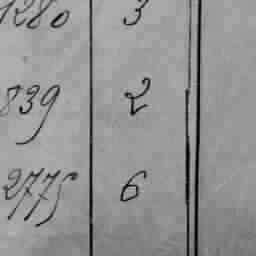 1280 3
839 2
2775 6